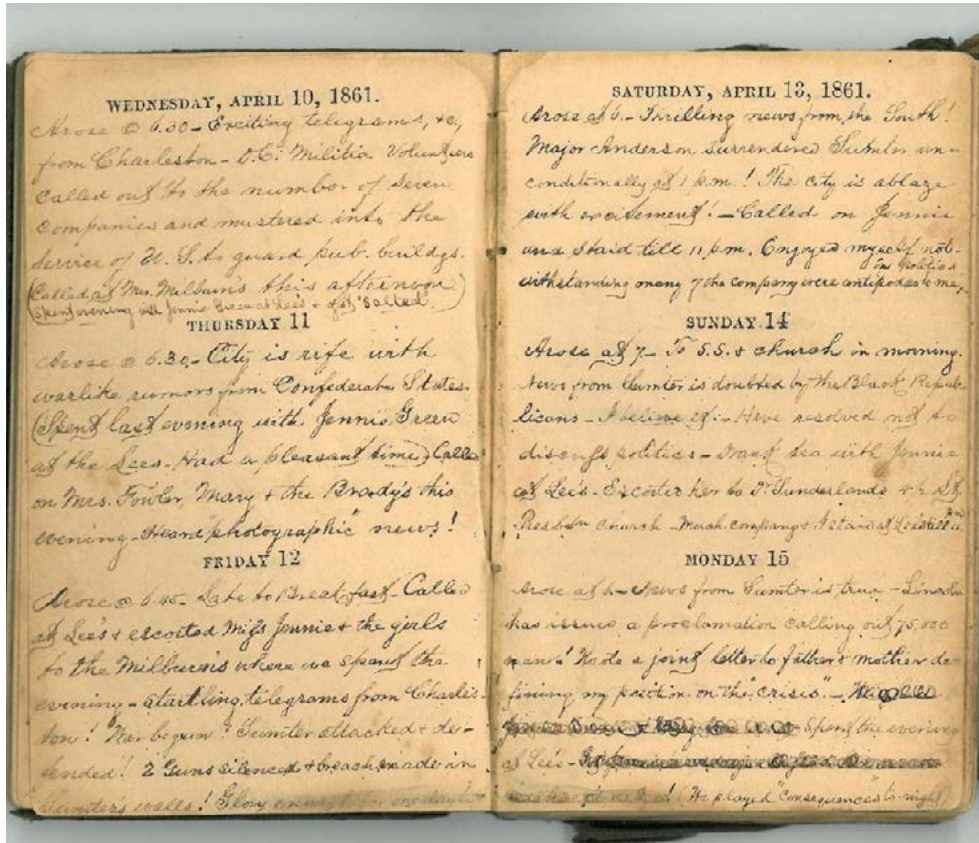 WEDNESDAY, APRIL 10, 1861.
Arose @ 6.30 - Exciting telegrams, &c,
from Charleston - D.C. Militia Volunteers
called out to the number of seven
companies and mustered into the
service of U.S. to guard pub. buildgs.
(Called at Mrs. Milburn's this afternoon
(Spent evening with Jennie Green at Lee's +
THURSDAY 11
Arose @ 6.30 - City is rife with
warlike rumors from Confederate States.
(Spent last evening with Jennie Green
at the Lees. Had a pleasant time) Called
on Mrs. Fowler, Mary & the Brady's this
evening - Heard "photographic" news!
FRIDAY 12
Arose @ 6.45 - Late to Breakfast - Called
at Lee's & escorted Miss Jennie & the girls
to the Milburn's where we spent the
evening - startling telegrams from Charles-
ton! War begun! Sumter attacked & de-
fended! 2 Guns silenced & breach made in
Sumters walls! Glory enough for one day!
SATURDAY, APRIL 13, 1861.
Arose at 6 - Thrilling news from the South!
Major Anderson surrendered Sumter un-
conditionally at 1 p.m.! The city is ablaze
with excitement! - Called on Jennie
and staid till 11 p.m. Enjoyed myself not-
withstanding many of the company were antipodes to me,
in politics
SUNDAY 14
Arose at 7 - To S.S. & church in morning.
News from Sumter is doubted by the Black Repub-
licans - I believe it - Have resolved not to
discuss politics - Drank tea with Jennie
at Lee's - Escorted her to Dr Sunderlands 4½ St
Presbtn church - Much company & I staid at Lees till 11
MONDAY 15
Arose at 6 - News from Sumter is true - Lincoln
has issued a proclamation calling out 75,000
men! Wrote a joint letter to father & mother de-
fining my position on the "crisis" -
Spent the evening
at Lee's -
We played "Consequences" to-night